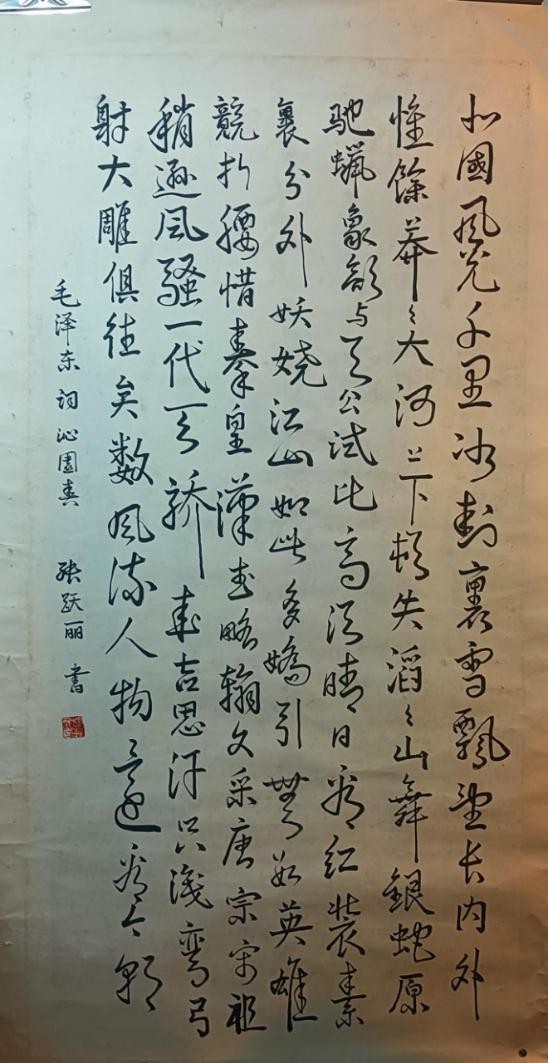 北國风光千里冰封裏雪飄望长内外
惟餘莽々大河上下顿失滔々山舞銀蛇原
驰蜡象欲与天公试比高须晴日看红装素
裹分外妖娆江山如此多嬌引無数英雄
競折腰惜秦皇漢武略翰文采唐宗宋祖
稍遜风骚一代天骄成吉思汗只識弯弓
射大雕俱往矣数风流人物還看今朝
毛泽东词沁園春 张跃丽書